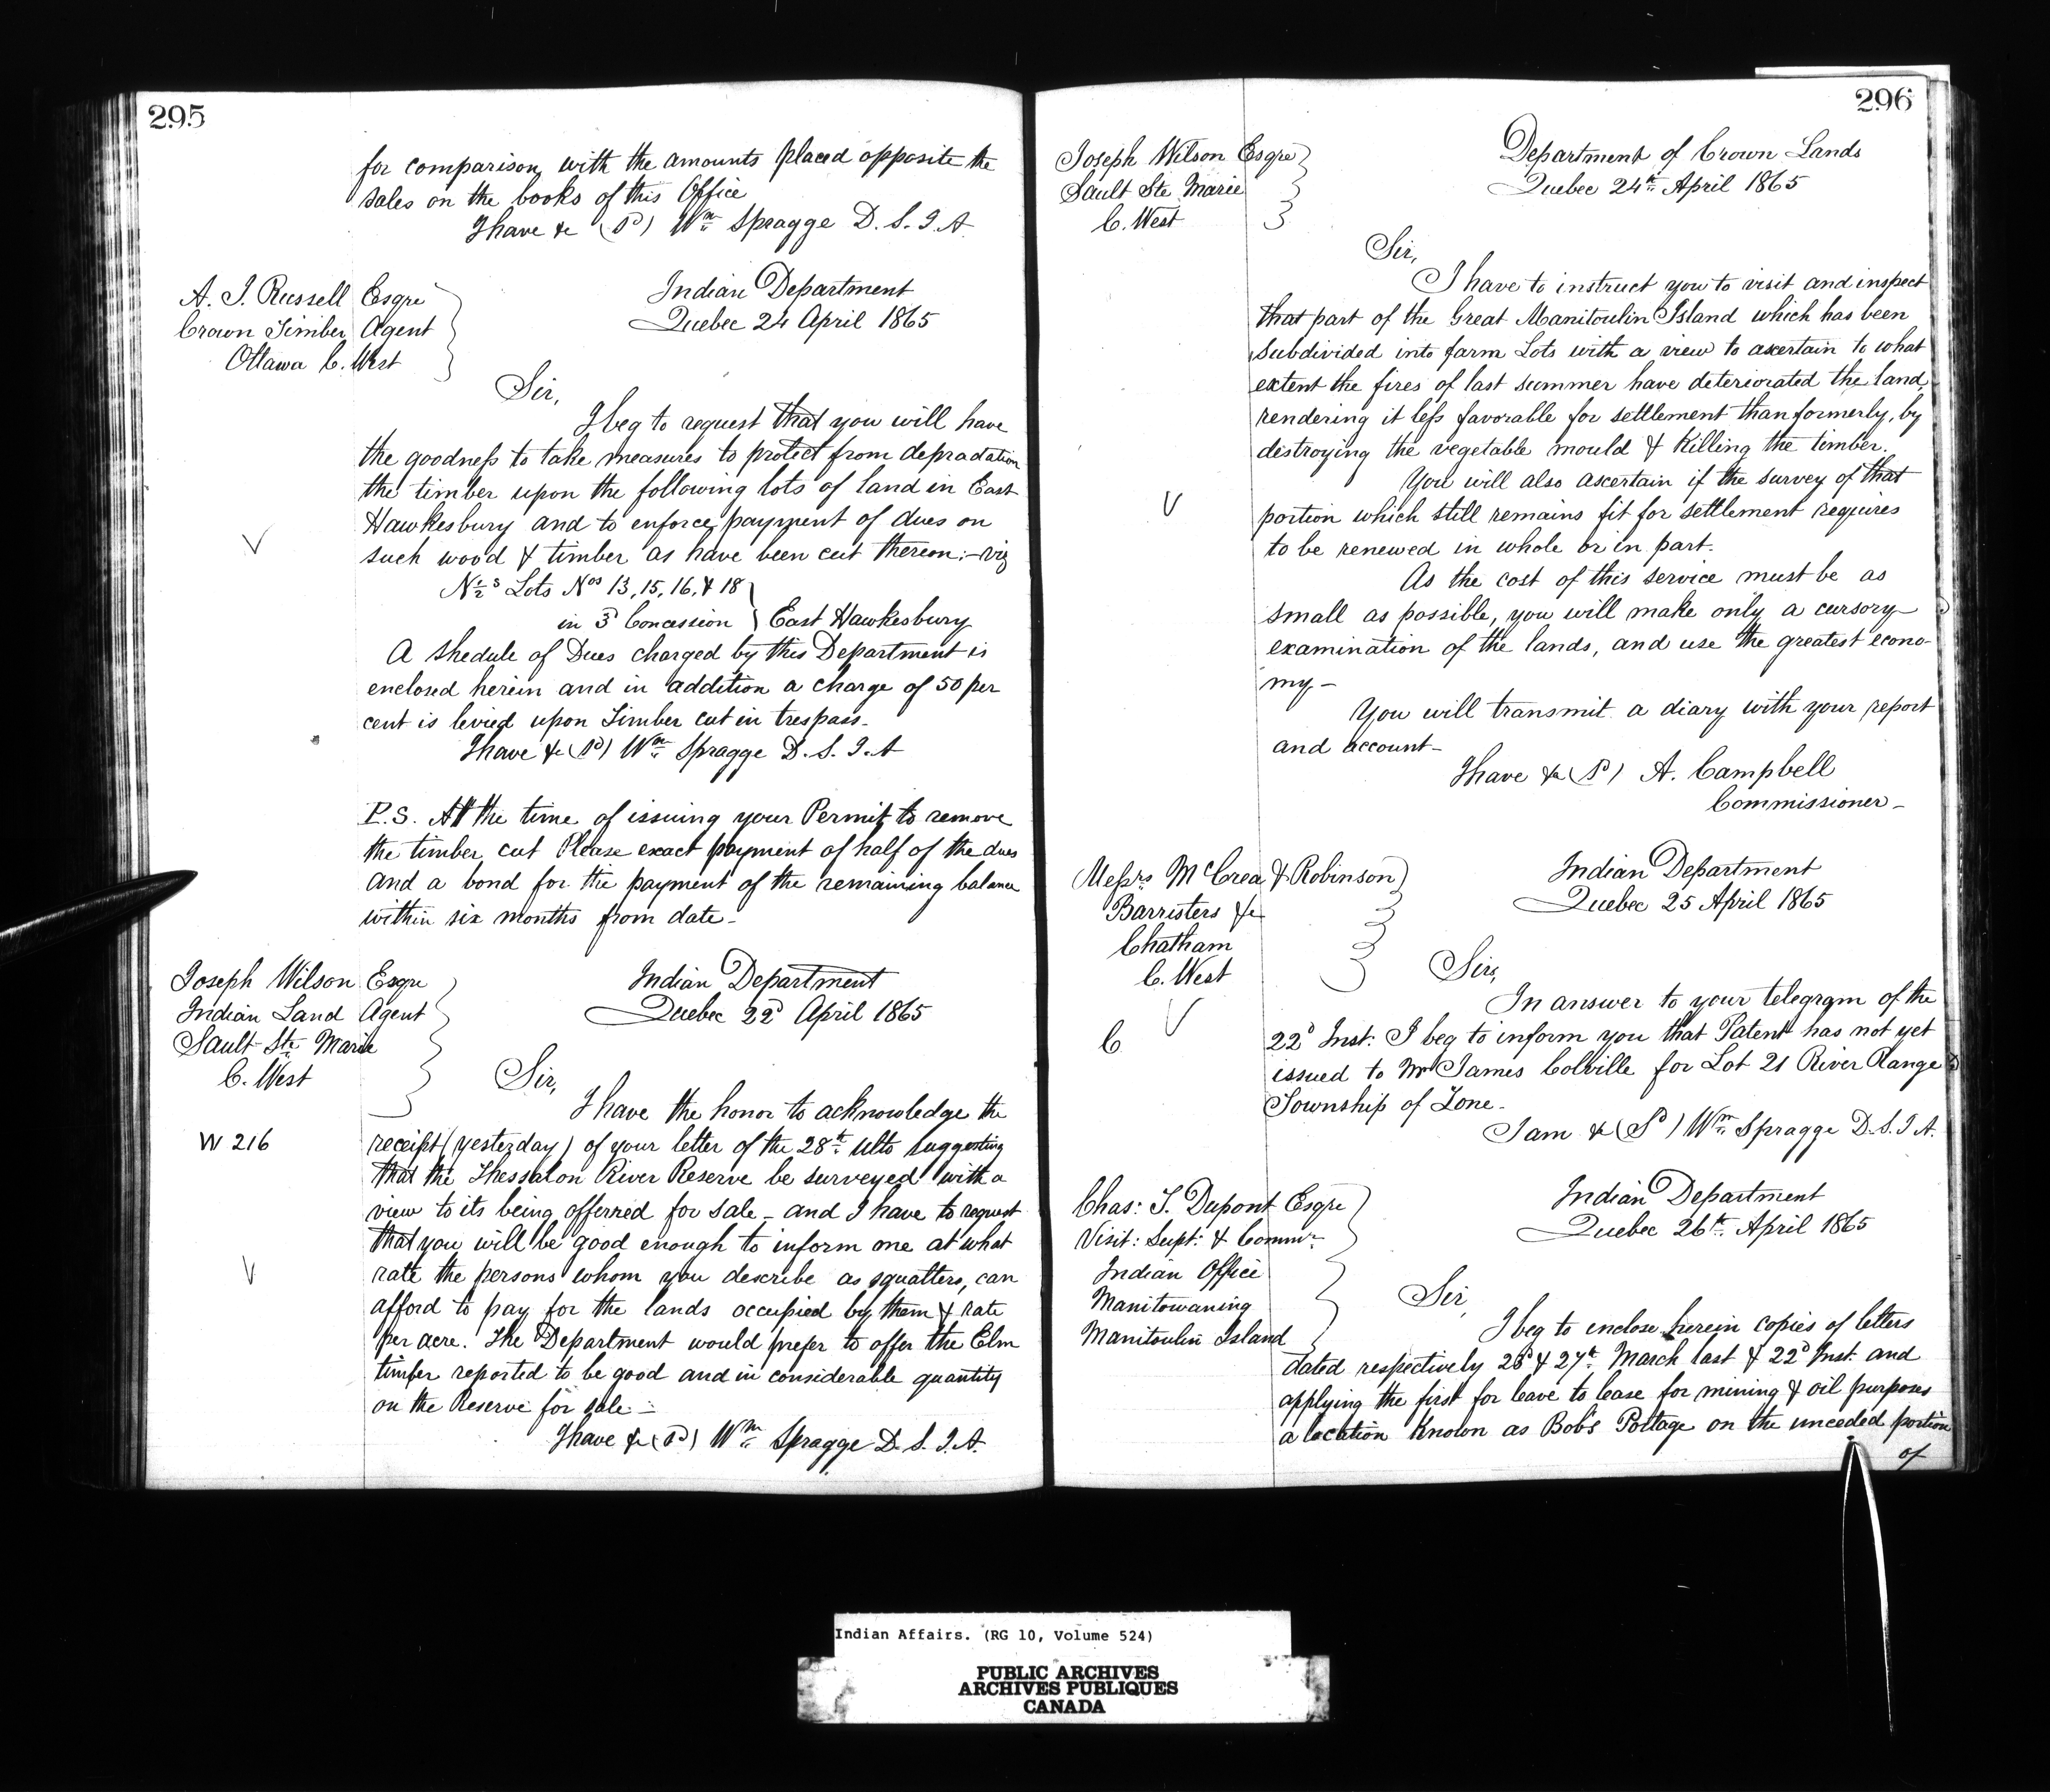 295
for comparison, with the amounts placed opposite the
sales on the books of this Office
I have &c (Sd) Wm Spragge D. S. I. A.
A. J. Russell Esqre
Crown Timber Agent
Ottawa C. West
Indian Department
Quebec 24 April 1865
Sir,
I beg to request that you will have
the goodness to take measures to protect from depradation
the timber upon the following lots of land in East
Hawkesbury and to enforce payment of dues on
such wood & timber as have been cut thereon:- viz
N½s Lots Nos 13, 15, 16, & 18
in 3d Concession } East Hawkesbury
A shedule of Dues charged by this Department is
enclosed herein and in addition a charge of 50 per
cent is levied upon Timber cut in trespass-
I have &c (Sd) Wm Spragge D. S. I. A
P.S. At the time of issuing your Permit to remove
the timber cut Please exact payment of half of the dues
and a bond for the payment of the remaining balance
within six months from date-
Joseph Wilson Esqre
Indian Land Agent
Sault Ste Marie
C. West
Indian Department
Quebec 22d April 1865
Sir,
I have the honor to acknowledge the
W 216
receipt (yesterday) of your letter of the 28th ulto suggesting
that the Thessalon River Reserve be surveyed with a
view to its being offerred for sale - and I have to request
that you will be good enough to inform me at what
rate the persons whom you describe as squatters, can
afford to pay for the lands occupied by them & rate
per acre. The Department would prefer to offer the Elm
timber reported to be good and in considerable quantity
on the Reserve for sale:-
I have &c (Sd) Wm Spragge D. S. I. A.
296
Joseph Wilson Esqre
Sault Ste Marie
C. West
Department of Crown Lands
Quebec 24th April 1865
Sir,
I have to instruct you to visit and inspect
that part of the Great Manitoulin Island which has been
subdivided into farm Lots with a view to ascertain to what
extent the fires of last summer have deteriorated the land,
rendering it less favorable for settlement than formerly, by
distroying the vegetable mould & killing the timber.
You will also ascertain if the survey of that
portion which still remains fit for settlement requires
to be renewed in whole or in part.
As the cost of this service must be as
small as possible, you will make only a cursory
examination of the lands, and use the greatest econo-
my-
You will transmit a diary with your report
and account-
I have &c (Sd) A. Campbell
Commissioner-
Messrs McCrea & Robinson
Barristers &c
Chatham
C. West
Indian Department
Quebec 25 April 1865
Sirs,
In answer to your telegram of the
C
22d Inst: I beg to inform you that Patent has not yet
issued to Mr James Colville for Lot 21 River Range
Township of Zone-
I am &c (Sd) Wm Spragge D. S. I A.
Chas: T. Dupont Esqre
Visit: Supt: & Commr
Indian Office
Manitowaning
Manitoulin Island
Indian Department
Quebec 26th April 1865
Sir,
I beg to enclose herein copies of letters
dated respectively & 27th March last & 22d Inst. and
applying the first for leave to lease for mining & oil purposes
a location known as Bob's Portage on the unceded portion
of
Indian Affairs. (RG 10, Volume 524)
PUBLIC ARCHIVES
ARCHIVES PUBLIQUES
CANADA